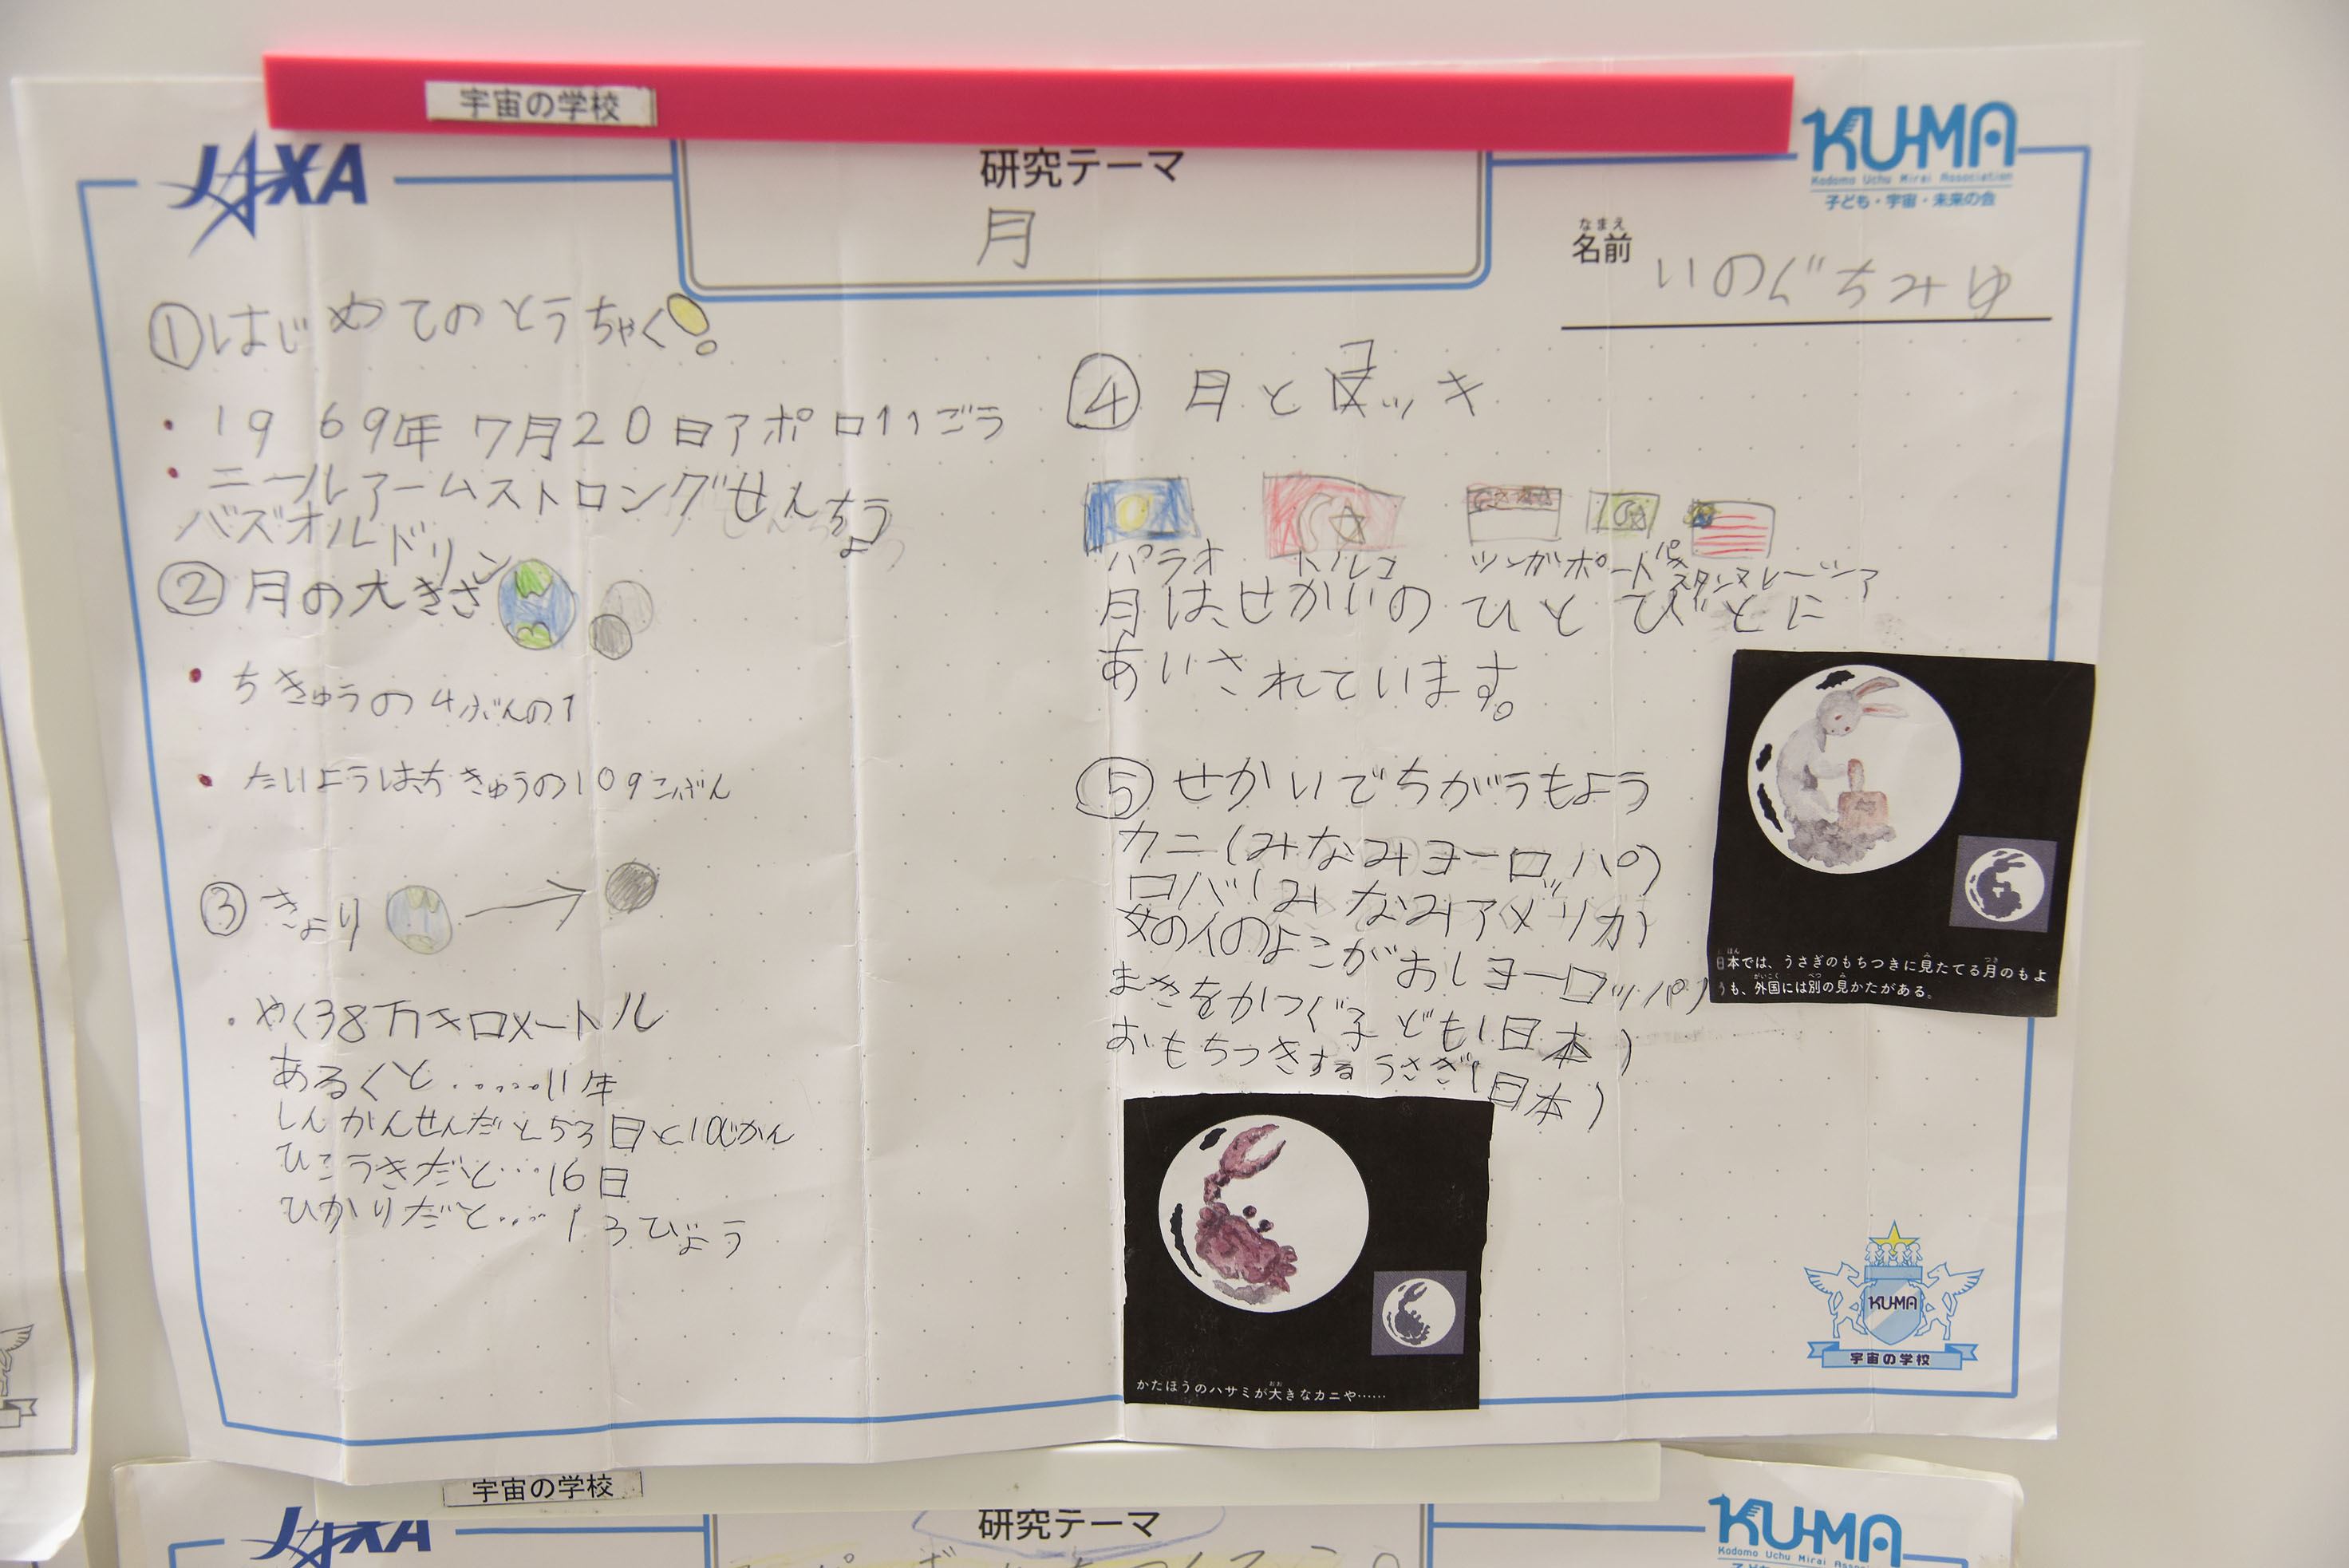 宇宙の学校
JAXA
研究テーマ
月
KU-MA
Kodomo Uchu Mirai Association
子ども・宇宙・未来の会
なまえ
名前 いのぐちみゆ
①はじめてのとうちゃく!
・1969年7月20日アポロ11ごう
・ニールアームストロングせんちょう
バズオルドリン
②月の大きさ
・ちきゅうの4ぶんの1
・たいようはちきゅうの109こぶん
③きょり
・やく38万キロメートル
あるくと……11年
しんかんせんだと53日と10じかん
ひこうきだと…16日
ひかりだと…13びょう
④月とコッキ
パラオ
トルコ
シンガポール
パキスタン
マレーシア
月は、せかいのひとびとに
あいされています。
⑤せかいでちがうもよう
カニ(みなみヨーロパ)
ロバ(みなみアメリカ)
女の人のよこがお(ヨーロッパ)
まきをかつぐ子ども(日本)
おもちつきするうさぎ(日本)
日本では、うさぎのもちつきに見たてる月のもよ
うも、外国には別の見かたがある。
かたほうのハサミが大きなカニや……
KU-MA
宇宙の学校
宇宙の学校
JAXA
研究テーマ
KU-MA
Kodomo Uchu Mirai Association